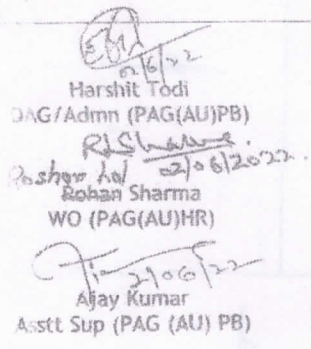 02/6/22
Harshit Todi
DAG/Admn (PAG(AU)PB)
RLSharma.
02/06/2022.
Roshan Lal
Rohan Sharma
WO (PAG(AU)HR)
2/06/22
Ajay Kumar
Asstt Sup (PAG (AU) PB)